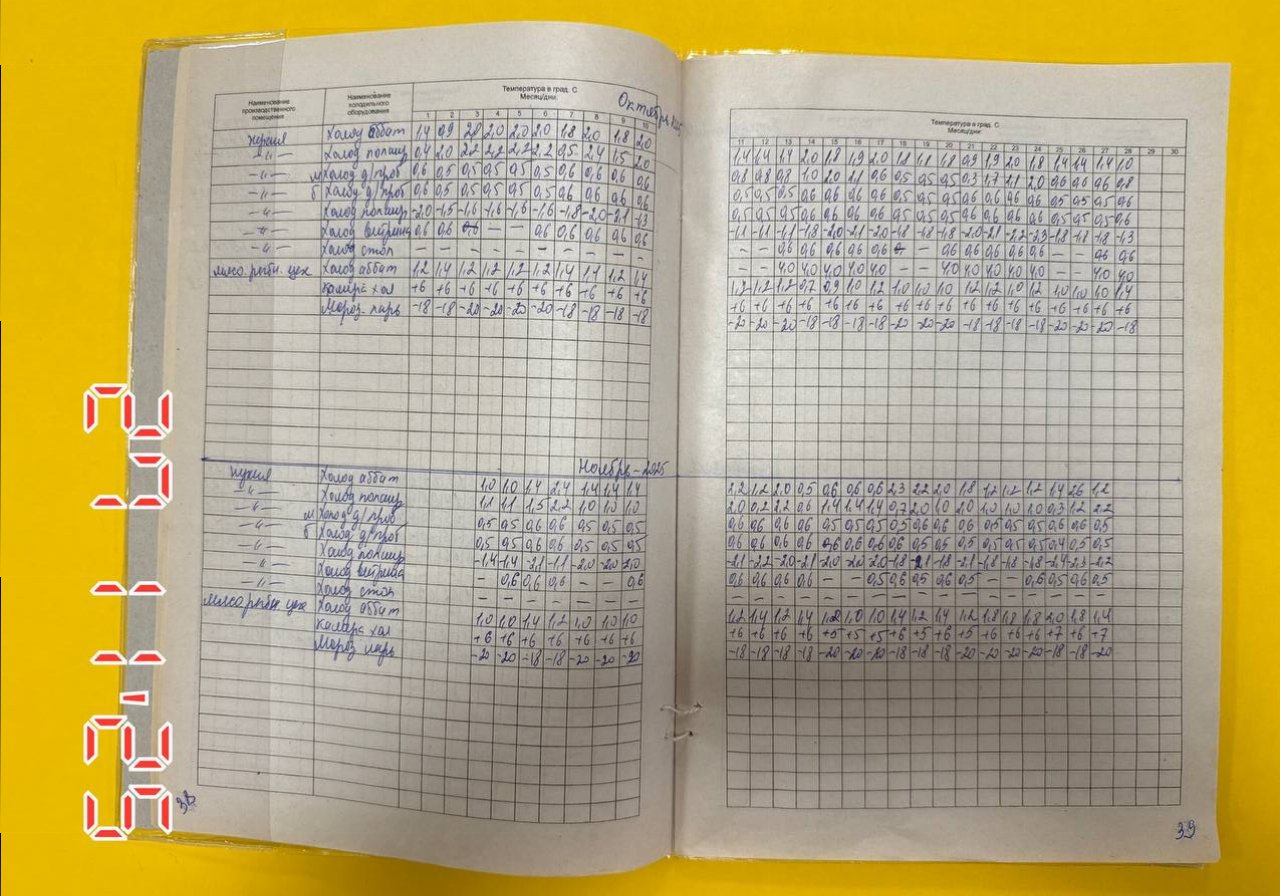 Наименование производственного помещения
Наименование холодильного оборудования
Температура в град. С
Месяц/дни.
Октябрь
1 2 3 4 5 6 7 8 9 10
кухня Холод аббат 1,4 0,9 2,0 2,0 2,0 1,8 2,0 1,8 2,0
-"- Холод 0,4 2,0 2,2 2,2 2,2 2,2 0,5 2,4 1,5 2,0
-"- м Холод д/проб 0,6 0,5 0,5 0,5 0,5 0,5 0,6 0,6 0,6 0,6
-"- б Холод д/проб 0,6 0,5 0,5 0,5 0,5 0,5 0,6 0,6 0,6 0,6
-"- Холод -2,0 -1,5 -1,6 -1,6 -1,6 -1,6 -1,8 -2,0 -2,1 -1,3
-"- Холод витрина 0,6 0,6 — — 0,6 0,6 0,6 0,6 0,6
-"- Холод стол — — — — — — — — — —
мясо.рыбн. цех Холод аббат 1,2 1,4 1,2 1,2 1,2 1,2 1,4 1,4 1,2 1,4
камера хол +6 +6 +6 +6 +6 +6 +6 +6 +6 +6
Мороз. ларь -18 -18 -20 -20 -20 -20 -18 -18 -18 -18
Ноябрь – 2025
кухня Холод аббат 1,0 1,0 1,4 2,4 1,4 1,4 1,4
-"- Холод 1,1 1,1 1,5 2,2 1,0 1,0 1,0
-"- м Холод д/проб 0,5 0,5 0,6 0,6 0,5 0,5 0,5
-"- б Холод д/проб 0,5 0,5 0,6 0,6 0,5 0,5 0,5
-"- Холод -1,4 -1,4 -2,1 -1,1 -2,0 -2,0 2,0
-"- Холод витрина — 0,6 0,6 0,6 — — 0,6
-"- Холод стол — — — — — — —
мясо рыбн цех Холод аббат 1,0 1,0 1,4 1,2 1,0 1,0 1,0
камера хол +6 +6 +6 +6 +6 +6 +6
Мороз ларь -20 -20 -18 -18 -20 -20 -20
38
Температура в град. С
Месяц/дни
11 12 13 14 15 16 17 18 19 20 21 22 23 24 25 26 27 28 29 30
1,4 1,4 1,4 2,0 1,8 1,9 2,0 1,8 1,8 1,8 0,9 1,9 2,0 1,8 1,4 1,4 1,4 1,0
0,8 0,8 0,8 1,0 2,0 1,1 0,6 0,5 0,5 0,5 0,3 1,7 1,1 2,0 0,6 0,6 0,6 0,8
0,5 0,5 0,5 0,6 0,6 0,6 0,6 0,5 0,5 0,5 0,6 0,6 0,6 0,6 0,5 0,5 0,5 0,6
0,5 0,5 0,5 0,6 0,6 0,6 0,6 0,5 0,5 0,5 0,6 0,6 0,6 0,6 0,5 0,5 0,5 0,6
-1,1 -1,1 -1,1 -1,8 -2,0 -2,1 -2,0 -1,8 -1,8 -1,8 -2,0 -2,1 -2,2 -2,3 -1,8 -1,8 -1,8 -1,3
— — 0,6 0,6 0,6 0,6 0,6 — 0,6 0,6 0,6 0,6 0,6 — — 0,6 0,6
— — 4,0 4,0 4,0 4,0 4,0 — — 4,0 4,0 4,0 4,0 4,0 — — 4,0 4,0
1,2 1,2 1,2 0,7 0,9 1,0 1,2 1,0 1,0 1,0 1,2 1,2 1,0 1,2 1,0 1,0 1,0 1,4
+6 +6 +6 +6 +6 +6 +6 +6 +6 +6 +6 +6 +6 +6 +6 +6 +6 +6
-20 -20 -20 -18 -18 -18 -18 -20 -20 -20 -18 -18 -18 -18 -20 -20 -20 -18
2,2 1,2 2,0 0,5 0,6 0,6 0,6 2,3 2,2 2,0 1,8 1,2 1,2 1,2 1,4 2,6 1,2
2,0 0,2 2,2 0,6 1,4 1,4 1,4 0,7 2,0 1,0 2,0 1,0 1,0 1,0 0,3 1,2 2,2
0,6 0,6 0,6 0,6 0,5 0,5 0,5 0,5 0,6 0,6 0,6 0,5 0,5 0,5 0,6 0,6 0,5
0,6 0,6 0,6 0,6 0,6 0,6 0,6 0,6 0,5 0,5 0,5 0,5 0,5 0,5 0,4 0,5 0,5
-2,1 -2,2 -2,0 -2,1 -2,0 -2,0 -2,0 -1,8 -1,8 -2,1 -1,8 -1,8 -1,8 -2,4 -2,3 -2,2
0,6 0,6 0,6 0,6 — — 0,5 0,6 0,5 0,6 0,5 — — 0,6 0,5 0,6 0,5
— — — — — — — — — — — — — — — — —
1,2 1,4 1,2 1,4 1,2 1,0 1,0 1,4 1,2 1,4 1,2 1,8 1,8 1,8 2,0 1,8 1,4
+6 +6 +6 +6 +5 +5 +5 +6 +5 +6 +5 +6 +6 +6 +7 +6 +7
-18 -18 -18 -18 -20 -20 -20 -18 -18 -18 -20 -20 -20 -20 -18 -18 -20
39
52-11-52